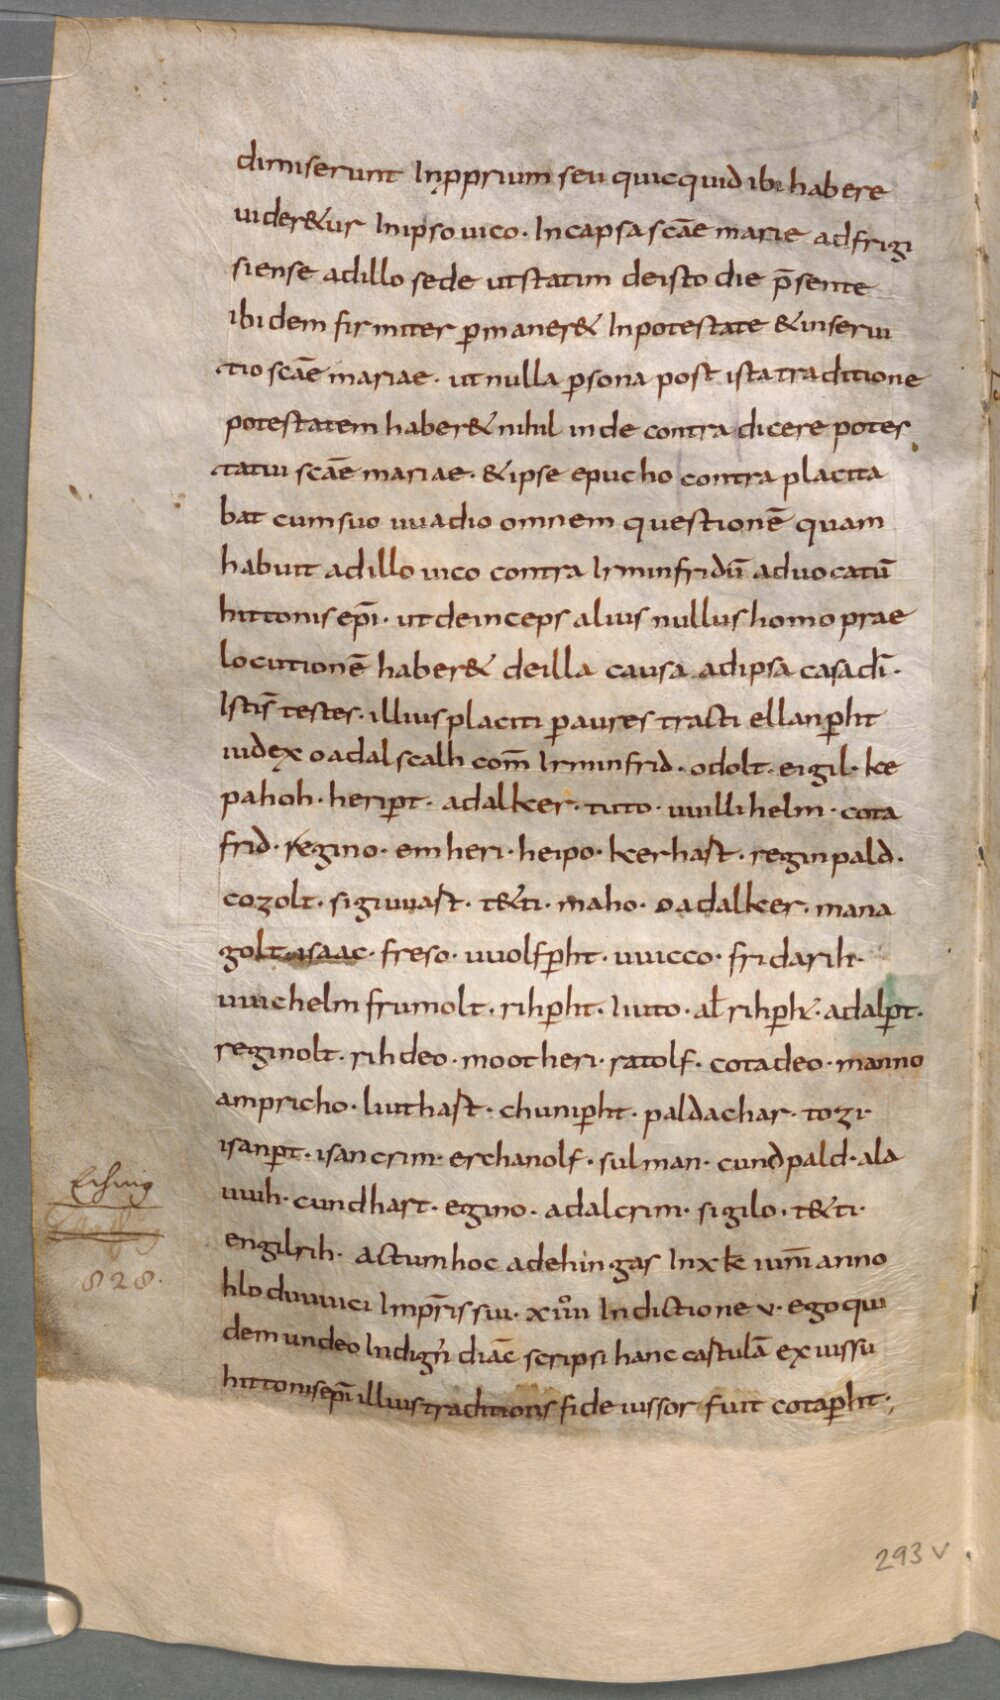 dimiserunt In pprium seu quicquid ibi habere
uider&ur In ipso uico · In capsa scāe marie ad frigi
siense ad illo sede ut statim de isto die p̄sente
ibidem firmiter ꝑmaner& In potestate & in serui
tio scāe mariae · ut nulla ꝑsona post ista traditione
potestatem haber& nihil inde contra dicere potes
tatiui scāe mariae · & ipse epucho contra placita
bat cum suo uuadio omnem questionē quam
habuit ad illo uico contra Irminfridū aduocatū
hittonis epī · ut deinceps alius nullus homo prae
locutionē haber& de illa causa ad ipsa casa dī ·
Istis̄ testes · illius placiti ꝑ aures tracti ellanꝑht
iudex oadalscalh com̄ Irminfrid · odolt · eigil · ke
pahoh · heriꝑt · adalker · tuto · uuillihelm · cota
frid · regino · emheri · heipo · kerhast · reginpald ·
cozolt · sigiuuast · t&ti · maho · oadalker · mana
golt · isaac · freso · uuolfꝑht · uuicco · fridarih ·
uuichelm frumolt · rihꝑht · liuto · al̄ rihꝑht · adalꝑt ·
reginolt · rihdeo · mootheri · ratolf · cotadeo · manno
ampricho · liuthast · chuniꝑht · paldachar · tozi ·
isanꝑt · isancrim · erchanolf · sulman · cundpald · ala
uuih · cundhart · egino · adalcrim · sigilo · t&ti ·
engilrih · actum hoc ad ehingas In x k iun̄ anno
hloduuuici Imp̄ris sui · xuͦiii Indictione v · ego qui
dem undeo Indign᷒ diāc scripsi hanc castulā ex iussu
hittonis epī illius traditionis fideiussor fuit cotaꝑht ·,
Eching
828 ·
293 v